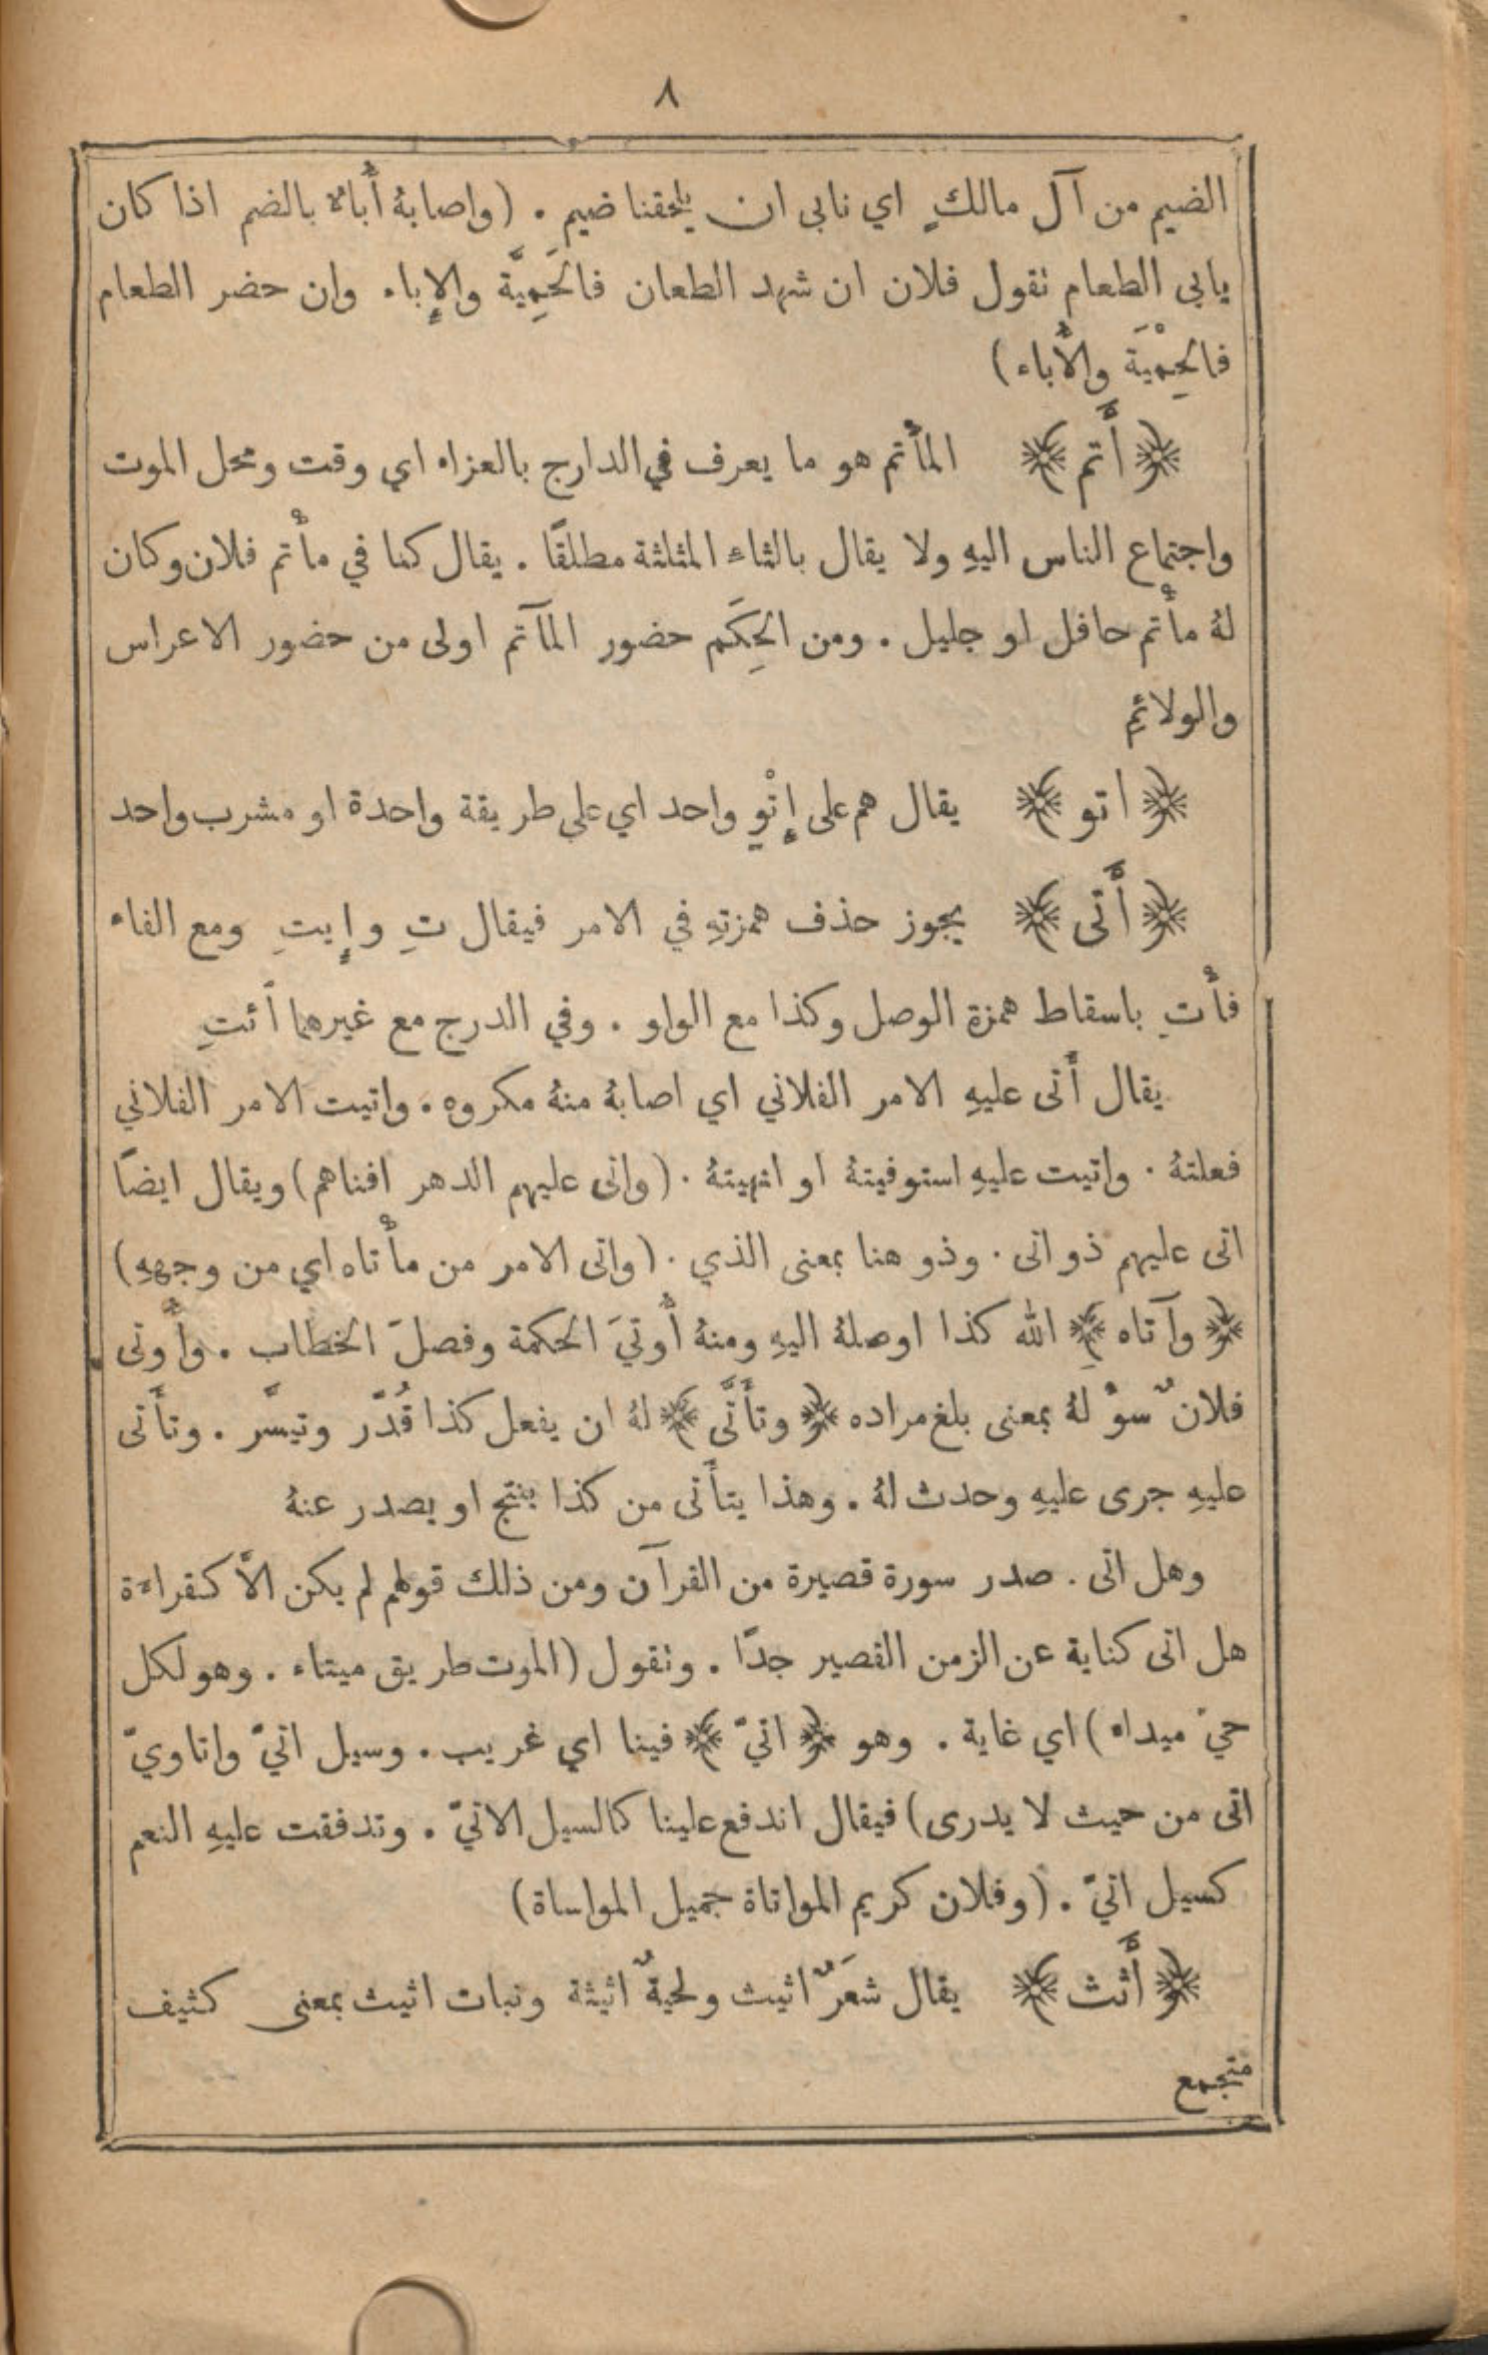 ٨
الضيم من آل مالكٍ اي نابى ان يلحقنا ضيم . (واصابهُ أُباءٌ بالضم اذا كان
يابى الطعام نقول فلان ان شهد الطعان فالحَمِيَّة والإِباء وان حضر الطعام
فالحِمْيَة والأُباء)
﴿أَتم﴾ المأْتم هو ما يعرف في الدارج بالعزاء اي وقت ومحل الموت
واجتماع الناس اليهِ ولا يقال بالثاء المثلثة مطلقًا . يقال كنا في مأْتم فلان وكان
لهُ مأْتم حافل او جليل . ومن الحِكَم حضور المآتم اولى من حضور الاعراس
والولائمِ
﴿اتو﴾ يقال هم على إِتْوٍ واحد اي على طريقة واحدة او مشرب واحد
﴿أَتى﴾ يجوز حذف همزتهِ في الامر فيقال تِ وإِيتِ ومع الفاء
فأْتِ باسقاط همزة الوصل وكذا مع الواو . وفي الدرج مع غيرهما ائتِ
يقال أَتى عليهِ الامر الفلاني اي اصابهُ منهُ مكروه . واتيت الامر الفلاني
فعلتهُ . واتيت عليهِ استوفيتهُ او انهيتهُ . (واتى عليهم الدهر افناهم) ويقال ايضًا
اتى عليهم ذو اتى . وذو هنا بمعنى الذي . (واتى الامر من مأْتاه اي من وجههِ)
﴿وآتاه﴾ الله كذا اوصلهُ اليهِ ومنهُ أُوتيَ الحكمة وفصلَ الخطاب . وأُوتى
فلانٌ سوْلهُ بمعنى بلغ مراده ﴿وتأَتَّى﴾ لهُ ان يفعل كذا قُدّر وتيسَّر . وتأَتى
عليهِ جرى عليهِ وحدث لهُ . وهذا يتأَتى من كذا ينتج او يصدر عنهُ
وهل اتى . صدر سورة قصيرة من القرآن ومن ذلك قولهم لم يكن الاَّ كقراءة
هل اتى كناية عن الزمن القصير جدًّا . ونقول (الموت طريق ميتاء . وهو لكل
حيّ ميداء) اي غاية . وهو ﴿اتيّ﴾ فينا اي غريب . وسيل اتيّ واتاويّ
اتى من حيث لا يدرى) فيقال اندفع علينا كالسيل الاتيّ . وتدفقت عليهِ النعم
كسيل اتيّ . (وفلان كريم المواتاة جميل المواساة)
﴿أَثث﴾ يقال شعَرٌ اثيث ولحيةٌ اثيثة ونبات اثيث بمعنى كثيف
متجمع